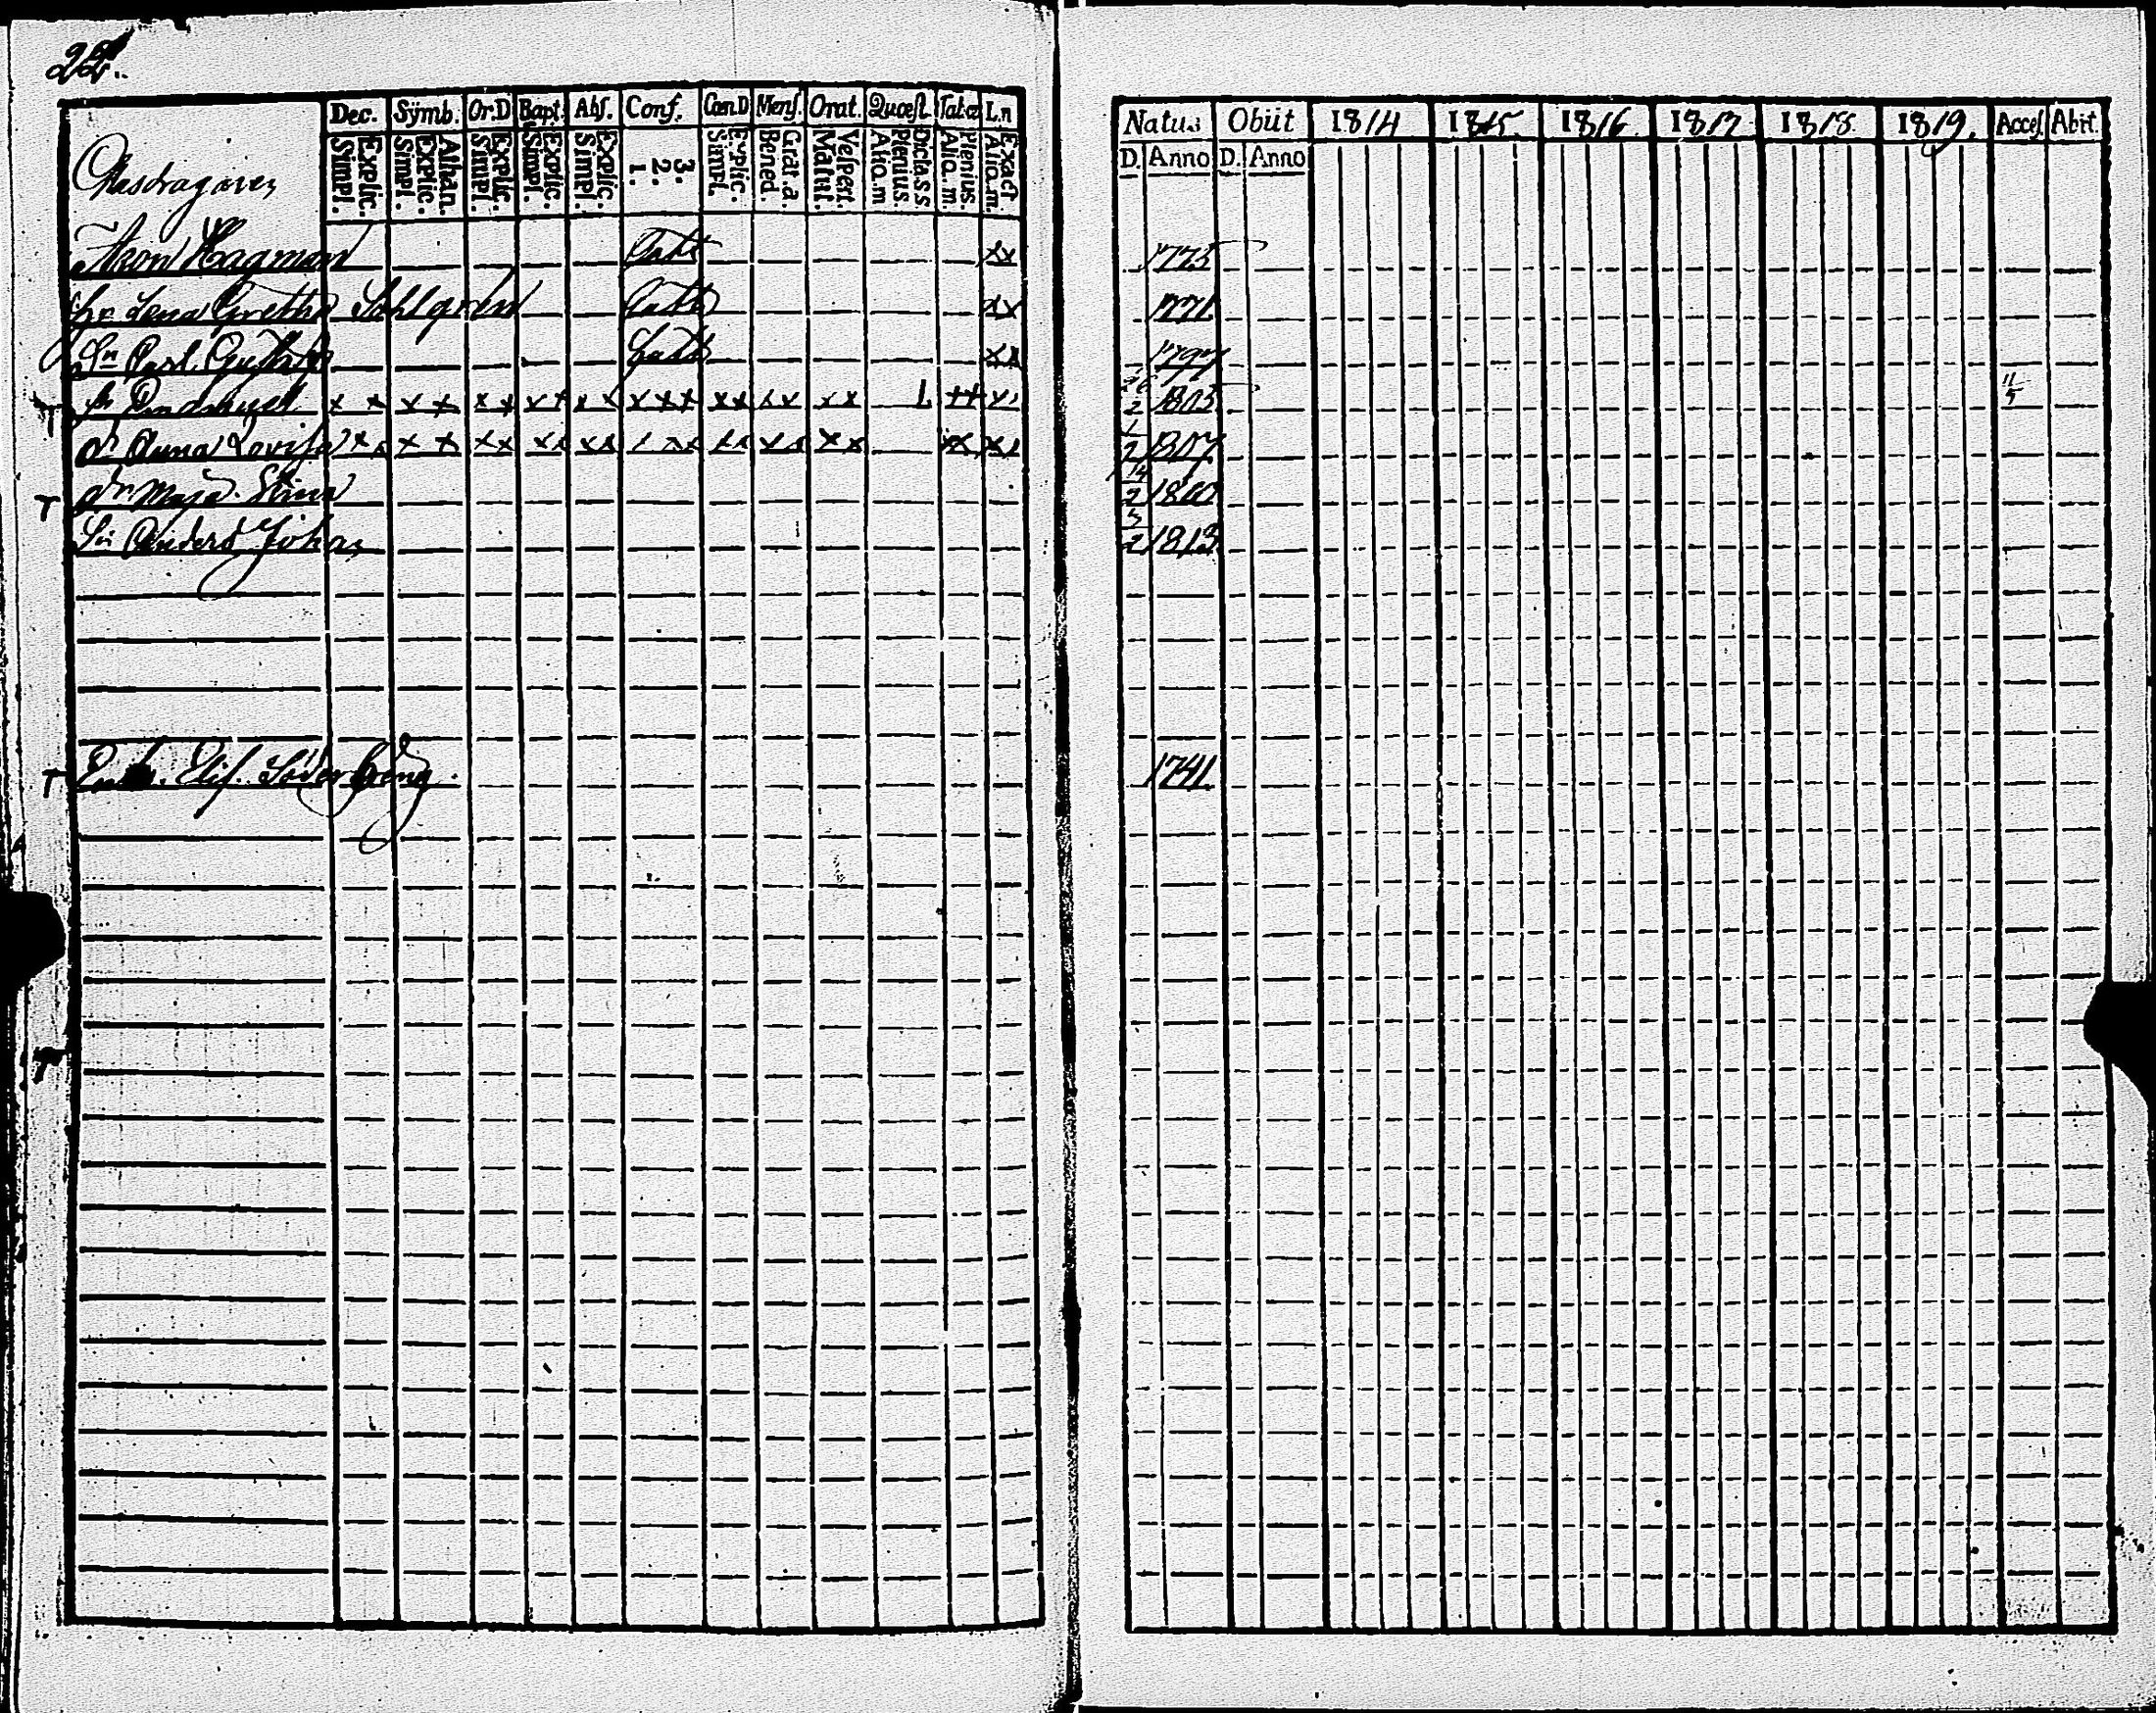 22.
Dec. Sÿmb. Or.D Bapt. Abſ. Conf. Cœn.D Menſ. Orat. Quœſt. Tab.œ L.n
Explic. Simpl. Athan. Explic. Simpl. Explic. Simpl. Explic. Simpl. Explic. Simpl. 3. 2. 1. Explic. Simpl. Grat.a. Bened. Veſpert. Matut. Dicta.s.s Plenius. Aliq.m Plenius. Aliq.m Exact. Aliq.m.
Glasdragaren
Aron Hagman xx
hu Lena Gretha Sahlgren xx
Sn Carl Gustaf xx
x x x x x x x x x x x x x x x x x x x x
dr Anna Lovisa x x x x x x x x x x x x x x x x x x x x
dr Maja Stina
Sn Anders Johan
Enk. Elis. Söderberg
Natus Obiit 1814 1815. 1816. 1817 1818 1819. Acceſ. Abit.
D. Anno D. Anno
1775
1771
1797
26/2 1805 11/5
1/2 1807
14/2 1810
3/2 1813
1741